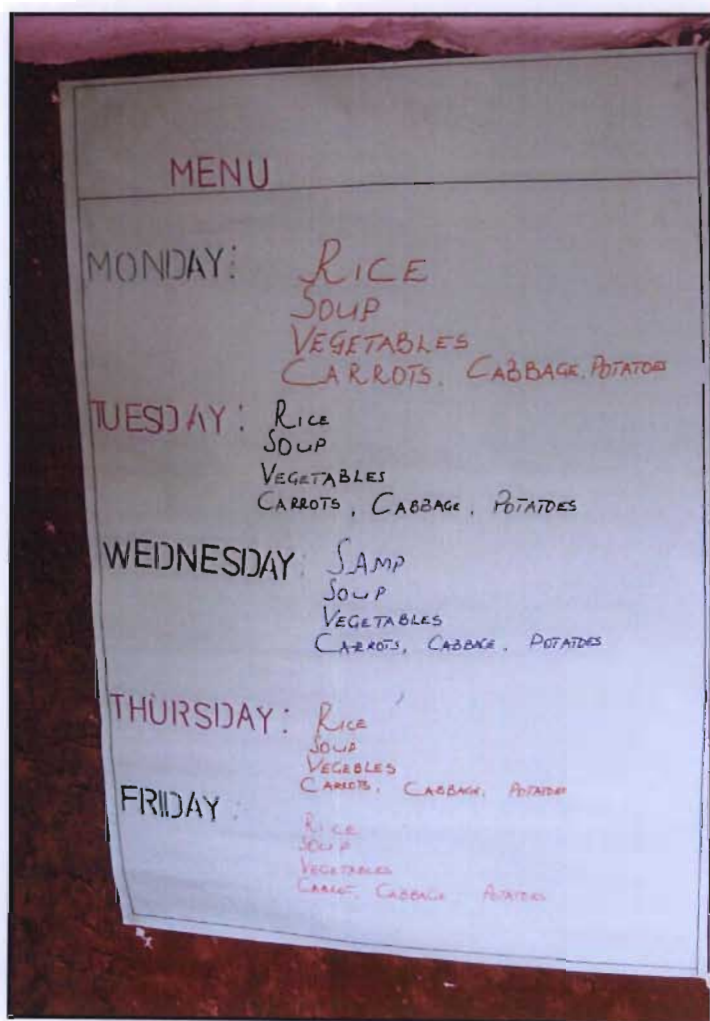 MENU
MONDAY: RICE
SOUP
VEGETABLES
CARROTS, CABBAGE, POTATOES
TUESDAY: RICE
SOUP
VEGETABLES
CARROTS, CABBAGE, POTATOES
WEDNESDAY: SAMP
SOUP
VEGETABLES
CARROTS, CABBAGE, POTATOES
THURSDAY: RICE
SOUP
VEGEBLES
CARROTS, CABBAGE, POTATOES
FRIDAY: RICE
SOUP
VEGETABLES
CARROT, CABBAGE POTATOES